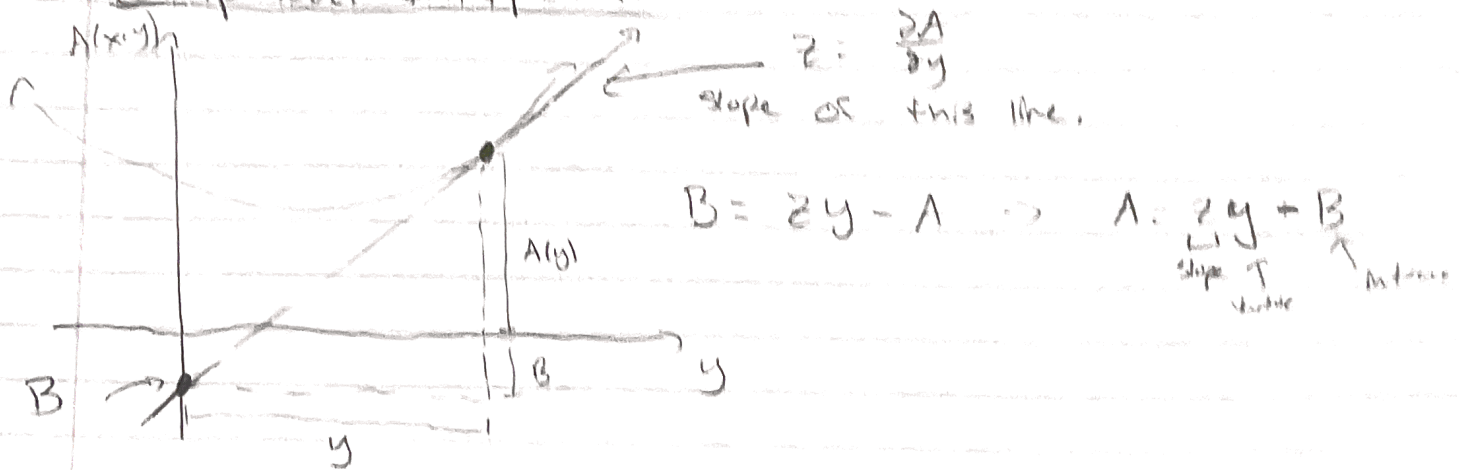 A(x,y)
z = ∂A/∂y
slope of this line.
B = zy - A → A = zy - B
slope
variable
A(y)
B
y
B
y